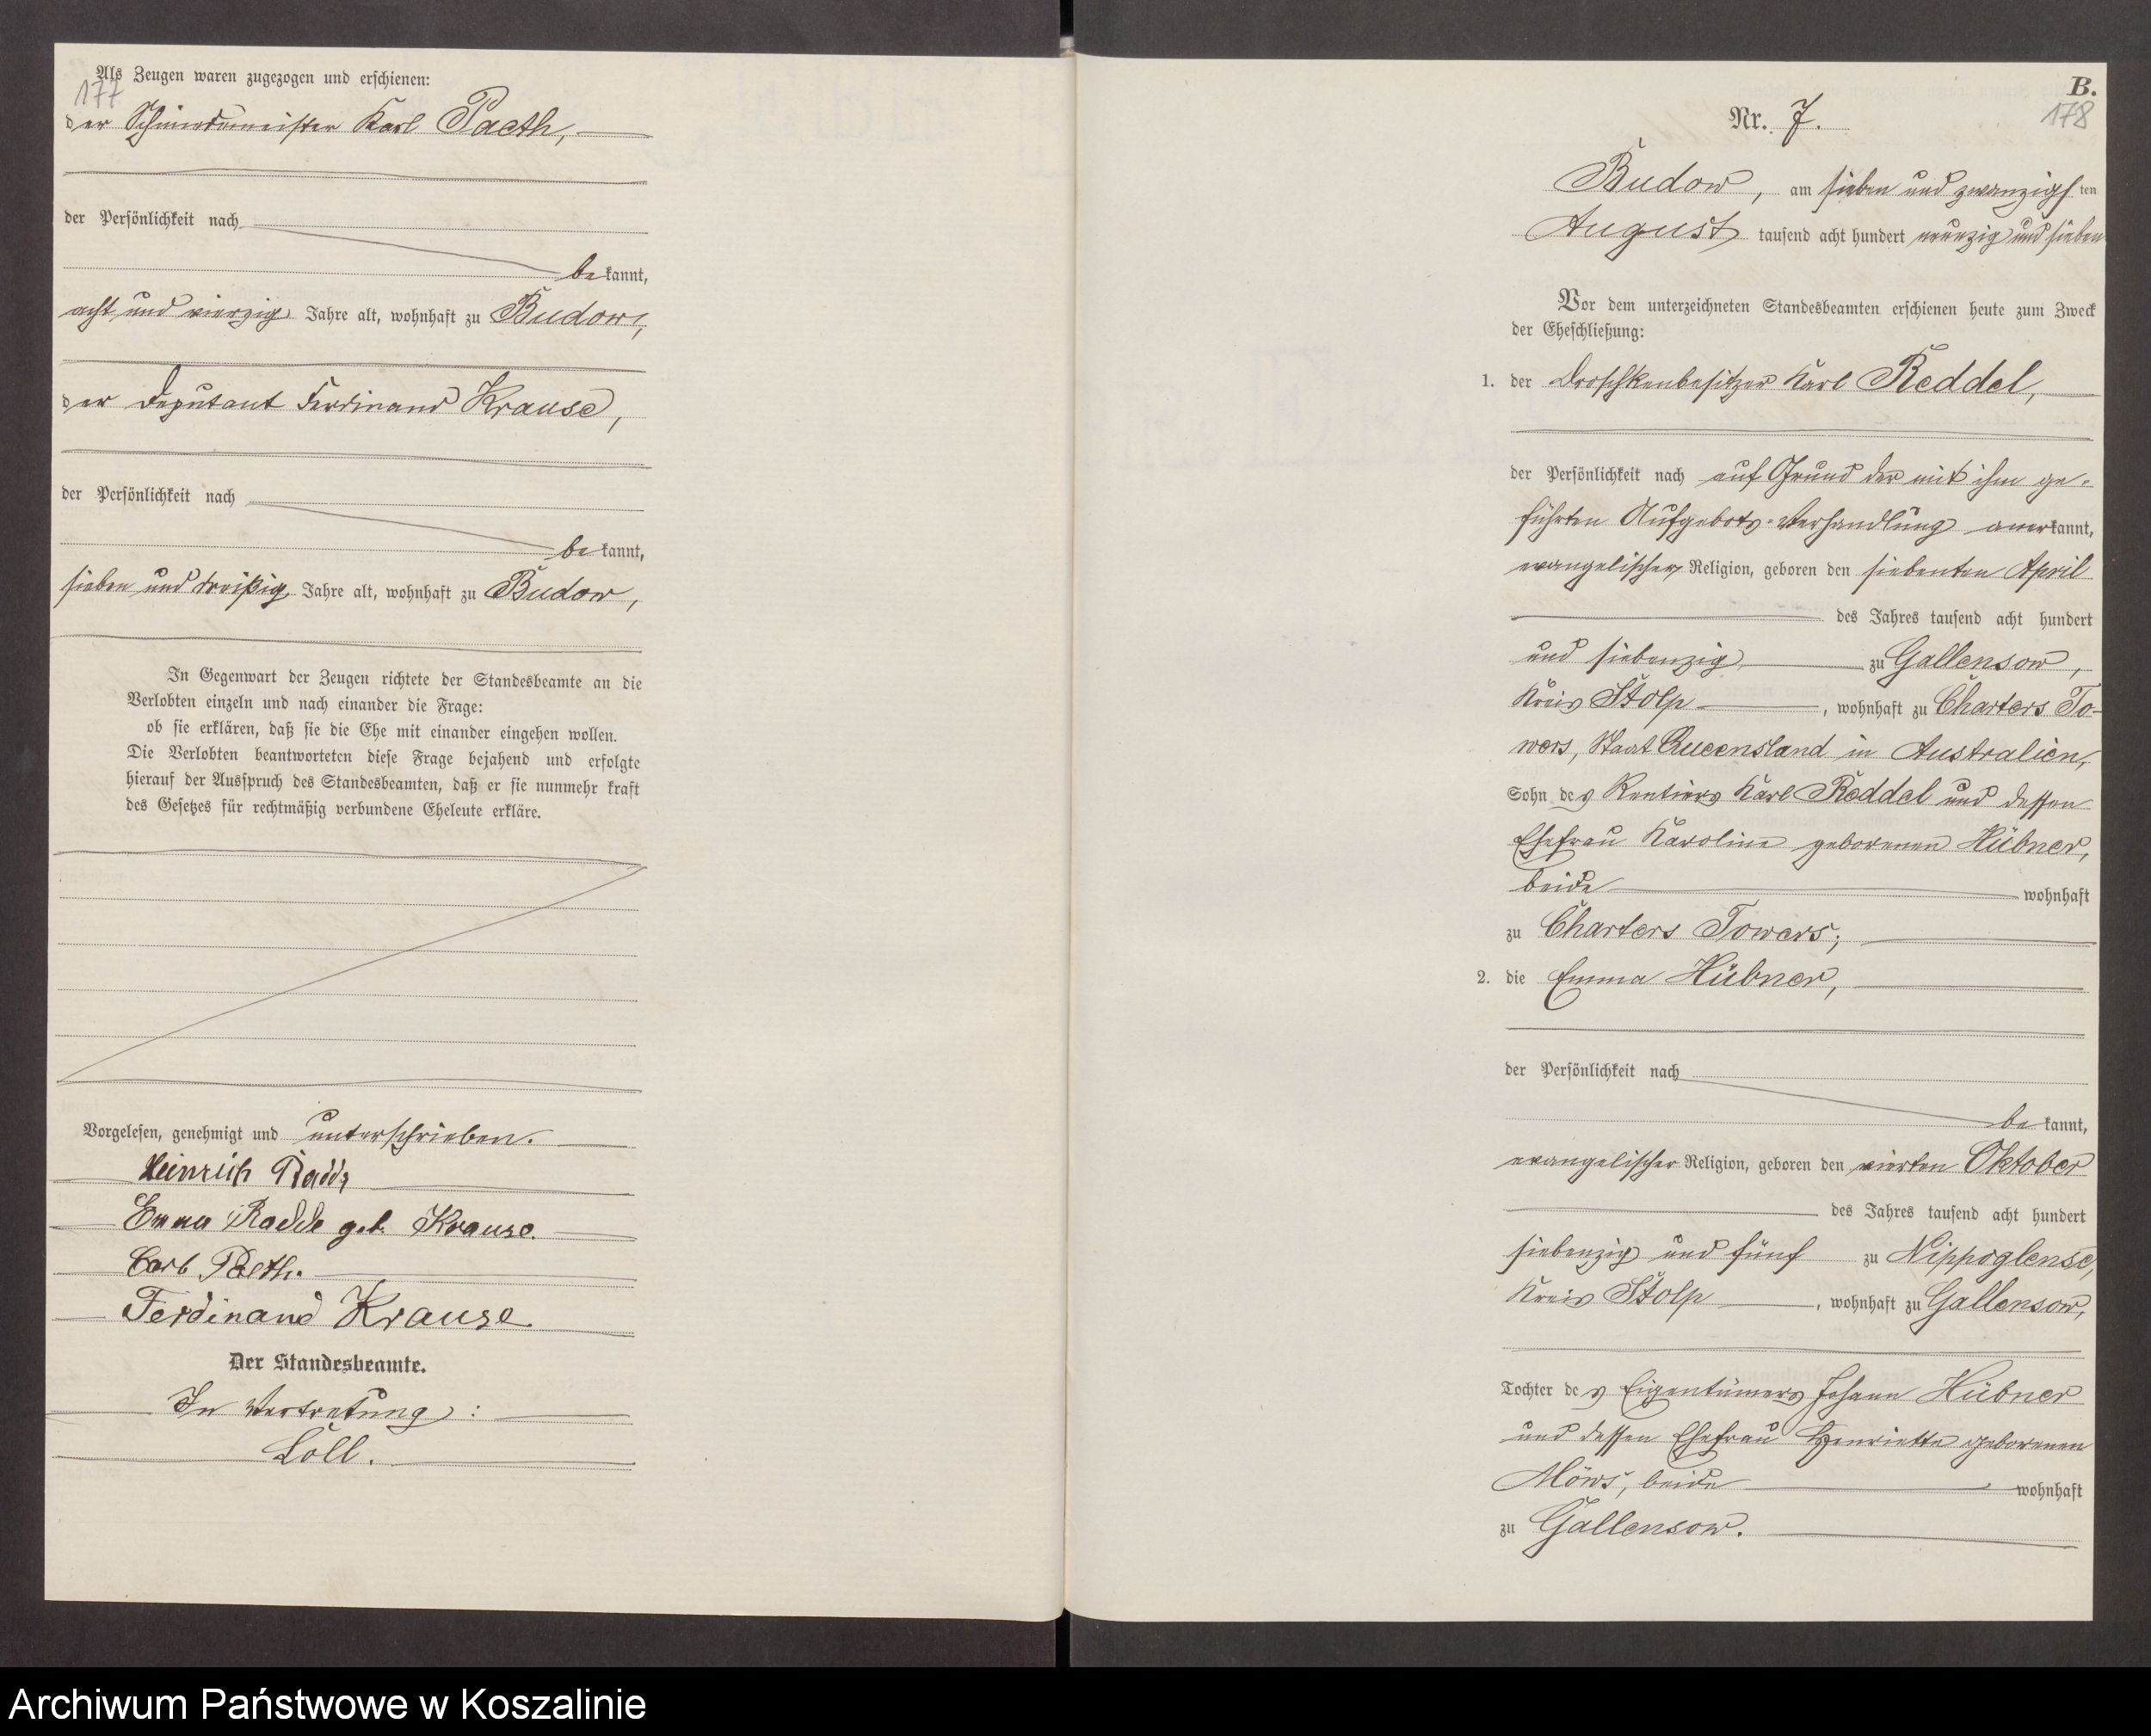 Als Zeugen waren zugezogen und erschienen:
177
der Schmiedemeister Karl Paeth,
der Persönlichkeit nach
be kannt,
acht und vierzig Jahre alt, wohnhaft zu Budow,
der Deputant Ferdinand Krause,
der Persönlichkeit nach
be kannt,
sieben und dreißig Jahre alt, wohnhaft zu Budow,
In Gegenwart der Zeugen richtete der Standesbeamte an die
Verlobten einzeln und nach einander die Frage:
ob sie erklären, daß sie die Ehe mit einander eingehen wollen.
Die Verlobten beantworteten diese Frage bejahend und erfolgte
hierauf der Ausspruch des Standesbeamten, daß er sie nunmehr kraft
des Gesetzes für rechtmäßig verbundene Eheleute erkläre.
Vorgelesen, genehmigt und unterschrieben.
Heinrich Radde
Emma Radde geb. Krause.
Carl Paeth.
Ferdinand Krause
Der Standesbeamte.
In Vertretung:
Löll.
B.
178
Nr. 7.
Budow, am sieben und zwanzigsten
August tausend acht hundert neunzig und sieben
Vor dem unterzeichneten Standesbeamten erschienen heute zum Zweck
der Eheschließung:
1. der Droschkenbesitzer Karl Reddel,
der Persönlichkeit nach auf Grund der mit ihm ge-
führten Aufgebots-Verhandlung anerkannt,
evangelischer Religion, geboren den siebenten April
des Jahres tausend acht hundert
und siebenzig zu Gallensow,
Kreis Stolp, wohnhaft zu Charters To-
wers, Staat Queensland in Australien,
Sohn des Rentiers Karl Reddel und dessen
Ehefrau Karoline geborenen Hübner,
beide wohnhaft
zu Charters Towers;
2. die Emma Hübner,
der Persönlichkeit nach
be kannt,
evangelischer Religion, geboren den vierten Oktober
des Jahres tausend acht hundert
siebenzig und fünf zu Nippoglense,
Kreis Stolp, wohnhaft zu Gallensow,
Tochter des Eigentümers Johann Hübner
und dessen Ehefrau Henriette geborenen
Möws, beide wohnhaft
zu Gallensow.
Archiwum Państwowe w Koszalinie